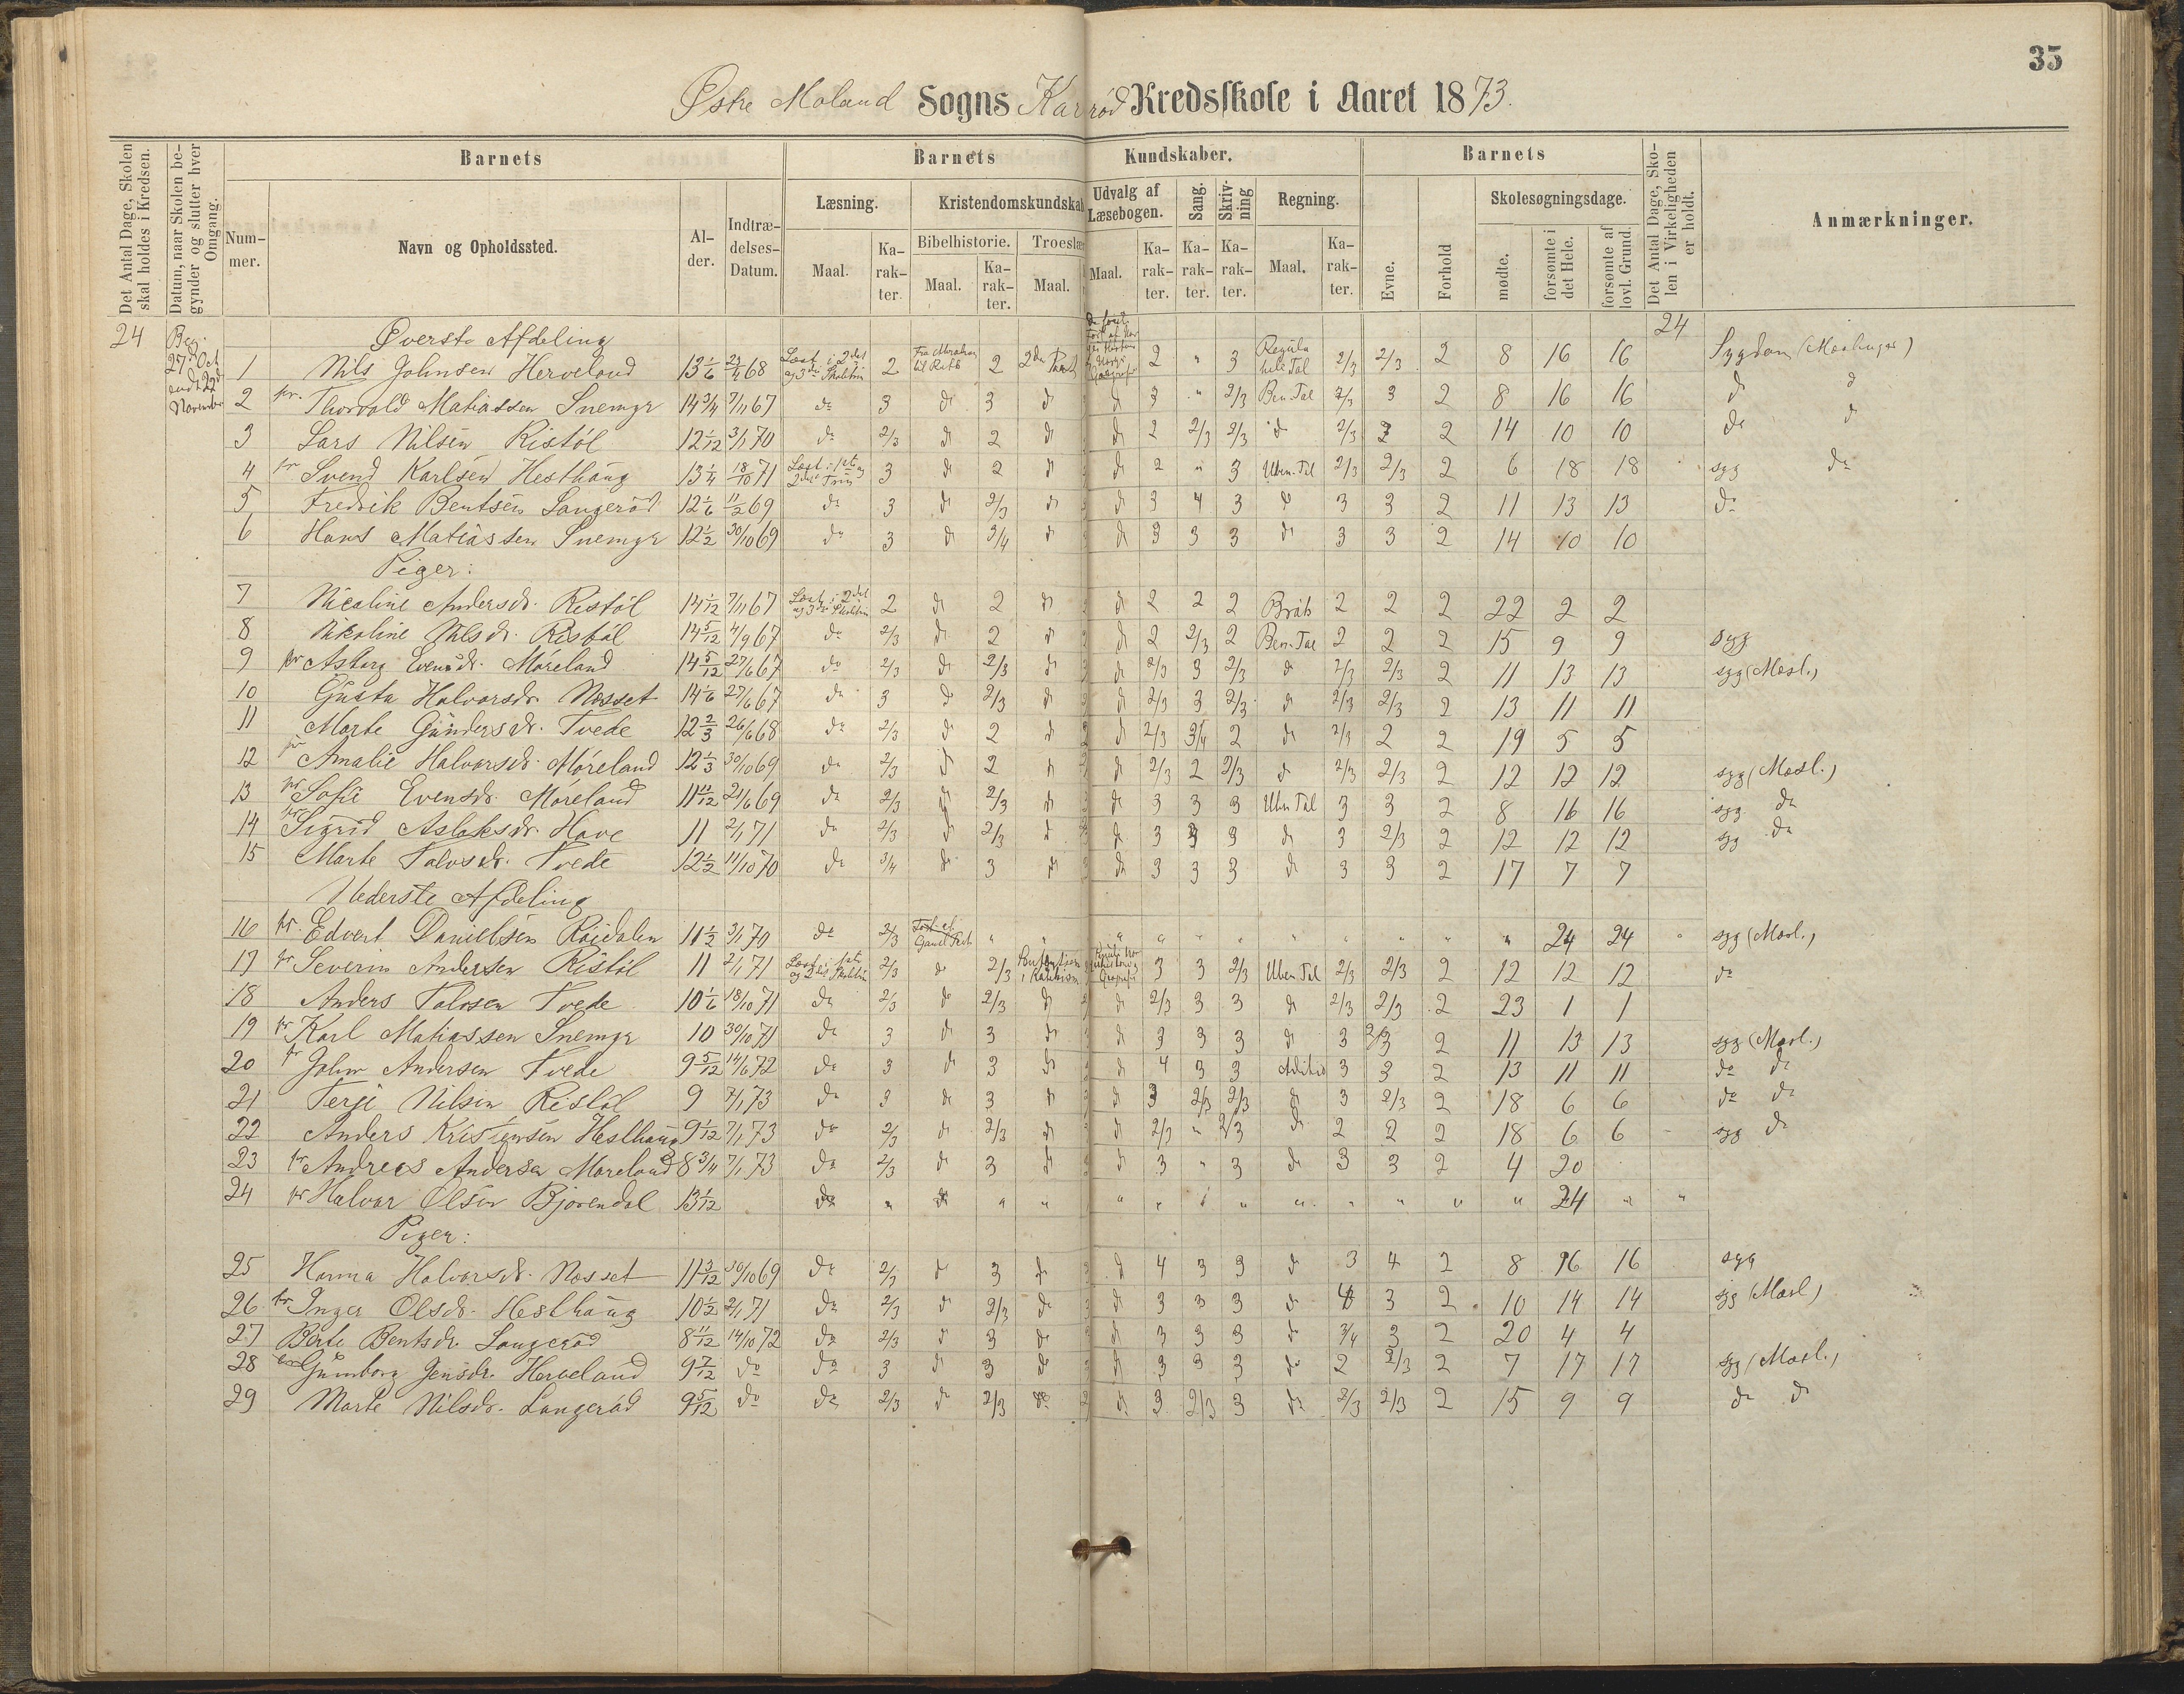 35
Østre Moland Sogns Karrød Kredsskole i Aaret 1873.
Det Antal Dage, Skolen skal holdes i Kredsen.
Datum, naar Skolen begynder og slutter hver Omgang.
Barnets
Barnets Kundskaber.
Barnets
Det Antal Dage, Skolen i Virkeligheden er holdt.
Anmærkninger.
Nummer.
Navn og Opholdssted.
Alder.
Indtrædelses-Datum.
Læsning.
Kristendomskundskab
Udvalg af Læsebogen.
Sang.
Skrivning
Regning.
Evne.
Forhold
Skolesøgningsdage.
Maal.
Karakter.
Bibelhistorie.
Troeslær
Maal.
Karakter.
Maal.
Maal.
Karakter.
Karakter.
Karakter.
Maal.
Karakter.
mødte.
forsømte i det Hele.
forsømte af lovl. Grund.
24 Beg. 27de Oct endt 22d November
Øverste Afdeling 24
1 Nils Johnsen Herveland 13 1/6 23/4 68 Læst i 2det og 3die Skoletrin 2 Fra Abraham til Ruth 2 2den Part 2 " 3 Regula hele Tal 2/3 2/3 2 8 16 16 Sygdom (Meslinger)
2 Thorvald Matiassen Snemyr 14 3/4 7/11 67 do 3 do 3 do do 3 " 2/3 Ben. Tal 2/3 3 2 8 16 16 do do
3 Lars Nilsen Ristöl 12 1/12 3/1 70 do 2/3 do 2 do do 2 2/3 2/3 do 2/3 2 2 14 10 10 do do
4 Svend Karlsen Hesthaug 13 1/4 18/10 71 Læst i 1ste og 2det Trin 3 do 2 do do 2 " 3 Uben. Tal 2/3 2/3 2 6 18 18 syg do
5 Fredrik Bentsen Langerød 12 1/6 11/2 69 do 3 do 2/3 do do 3 4 3 do 3 3 2 11 13 13 do
6 Hans Matiassen Snemyr 12 1/2 30/10 69 do 3 do 3/4 do do 3 3 3 do 3 3 2 14 10 10
Piger:
7 Nicoline Andersdr. Ristöl 14 1/12 7/11 67 Læst i 2det og 3die Skoletrin 2 do 2 do do 2 2 2 Brök 2 2 2 22 2 2
8 Nikoline Nilsdr. Ristöl 14 5/12 4/9 67 do 2/3 do 2 do do 2 2/3 2 Ben. Tal 2 2 2 15 9 9 syg
9 Asborg Evensdr. Möreland 14 5/12 27/6 67 do 2/3 do 2/3 do do 2/3 3 2/3 do 2/3 2/3 2 11 13 13 syg (Mesl.)
10 Gusta Halvorsdr. Nesset 14 1/6 27/6 67 do 3 do 2/3 do do 2/3 3 2/3 do 2/3 2/3 2 13 11 11
11 Marte Gundersdr. Tvede 12 2/3 26/6 68 do 2/3 do 2 do do 2/3 3/4 2 do 2/3 2 2 19 5 5
12 Amalie Halvorsdr. Möreland 12 1/3 30/10 69 do 2/3 do 2 do do 2/3 2 2/3 do 2/3 2/3 2 12 12 12 syg (Mesl.)
13 Sofie Evensdr. Möreland 11 11/12 21/6 69 do 2/3 do 2/3 do do 3 3 3 Uben Tal 3 3 2 8 16 16 syg do
14 Sigrid Aslaksdr. Have 11 2/1 71 do 2/3 do 2/3 do do 3 3 3 do 3 2/3 2 12 12 12 syg do
15 Marte Talvsdr. Tvede 12 1/2 11/10 70 do 3/4 do 3 do do 3 3 3 do 3 3 2 17 7 7
Nederste Afdeling
16 Edvert Danielsen Röidalen 11 1/2 3/1 70 do 2/3 " " " " " " " " " " " 24 24 " syg (Mesl.)
17 Severin Andersen Ristöl 11 2/1 71 Læst i 1ste og 2det Skoletrin 2/3 do 2/3 3 3 2/3 Uben Tal 2/3 2/3 2 12 12 12 do
18 Anders Talvsen Tvede 10 1/6 18/10 71 do 2/3 do 2/3 do do 2/3 3 3 do 2/3 2/3 2 23 1 1
19 Karl Matiassen Snemyr 10 30/10 71 do 3 do 3 do do 3 3 3 do 3 2/3 2 11 13 13 syg (Mesl.)
20 John Andersen Tvede 9 5/12 14/6 72 do 3 do 3 do do 4 3 3 Aditio 3 3 2 13 11 11 do do
21 Terje Nilsen Ristöl 9 7/1 73 do 3 do 3 do do 3 2/3 2/3 do 3 2/3 2 18 6 6 do do
22 Anders Kristensen Hesthaug 9 1/12 7/1 73 do 2/3 do 2/3 do do 2/3 " 2/3 do 2 2 2 18 6 6 syg do
23 Andreas Andersen Moreland 8 3/4 7/1 73 do 2/3 do 3 do do 3 " 3 do 3 3 2 4 20
24 Halvor Olsen Bjorendal 13 1/12 do " do " " " " " " " " " " " 24 " "
Piger:
25 Hanna Halvorsdr. Nesset 11 3/12 30/10 69 do 2/3 do 3 do do 4 3 3 do 3 4 2 8 16 16 syg
26 Inger Olsdr. Hesthaug 10 1/2 2/1 71 do 2/3 do 2/3 do do 3 3 3 do 4 3 2 10 14 14 syg (Mesl)
27 Berte Bentsdr. Langerød 8 11/12 14/10 72 do 2/3 do 3 do do 3 3 3 do 3/4 3 2 20 4 4
28 Gunborg Jensdr. Herveland 9 7/12 do do 3 do 3 do do 3 3 3 do 2 2/3 2 7 17 17 syg (Mesl.)
29 Marte Nilsdr. Langeröd 9 5/12 do do 2/3 do 2/3 do do 3 2/3 3 do 2/3 2/3 2 15 9 9 do do